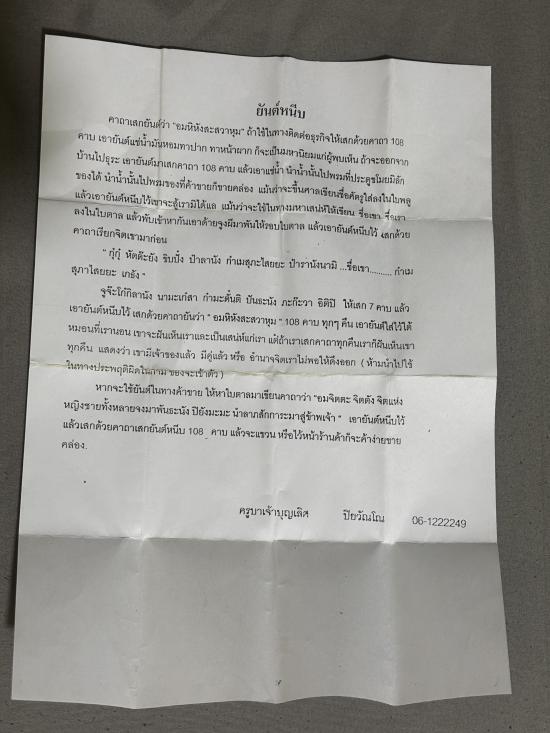 ยันต์หนีบ
คาถาเสกยันต์ว่า "อมหิหังสะสวาหุม" ถ้าใช้ในทางติดต่อธุรกิจให้เสกด้วยคาถา 108
คาบ เอายันต์แช่น้ำมันหอมทาปาก ทาหน้าผาก ก็จะเป็นมหานิยมแก่ผู้พบเห็น ถ้าจะออกจาก
บ้านไปธุระ เอายันต์มาเสกคาถา 108 คาบ แล้วเอาแช่น้ำ นำน้ำนั้นไปพรมที่ประตูขโมยมิลัก
ของได้ นำน้ำนั้นไปพรมของที่ค้าขายก็ขายคล่อง แม้นว่าจะขึ้นศาลเขียนชื่อศัตรูใส่ลงในใบพลู
แล้วเอายันต์หนีบไว้เขาจะสู้เรามิได้แล แม้นว่าจะใช้ในทางมหาเสน่ห์ให้เขียน ชื่อเขา ชื่อเรา
ลงในใบตาล แล้วพับเข้าหากันเอาด้ายจูงผีมาพันให้รอบใบตาล แล้วเอายันต์หนีบไว้ เสกด้วย
คาถาเรียกจิตเขามาก่อน
" กุ๋กุ๋ หัตถ๊ะยัง ขิบปั๋ง ป๋าลานัง กำเมสุภะไสยยะ ป๋ารานังนามิ ...ชื่อเขา.......... กำเม
สุภาไสยยะ เกอัง "
จู๊จ๊ะโก๋กิลานัง นามะเก๋สา กำมะตั๋นติ ปันธะนัง ภะก๊ะวา อิติปิ ให้เสก 7 คาบ แล้ว
เอายันต์หนีบไว้ เสกด้วยคาถายันว่า " อมหิหังสะสวาหุม " 108 คาบ ทุกๆ คืน เอายันต์ใส่ไว้ใต้
หมอนที่เรานอน เขาจะฝันเห็นเราและเป็นเสน่ห์แก่เรา แต่ถ้าเราเสกคาถาทุกคืนเราก็ฝันเห็นเขา
ทุกคืน แสดงว่า เขามีเจ้าของแล้ว มีคู่แล้ว หรือ อำนาจจิตเราไม่พอให้ดึงออก ( ห้ามนำไปใช้
ในทางประพฤติผิดในกาม ของจะเข้าตัว )
หากจะใช้ยันต์ในทางค้าขาย ให้หาใบตาลมาเขียนคาถาว่า "อมจิตตะ จิตตัง จิตแห่ง
หญิงชายทั้งหลายจงมาพันธะนัง ปิยังมะมะ นำลาภสักการะมาสู่ข้าพเจ้า " เอายันต์หนีบไว้
แล้วเสกด้วยคาถาเสกยันต์หนีบ 108 คาบ แล้วจะแขวน หรือไว้หน้าร้านค้าก็จะค้าง่ายขาย
คล่อง.
ครูบาเจ้าบุญเลิศ ปิยวัณโณ 06-1222249